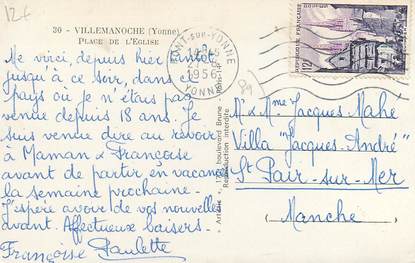 12f
30 - VILLEMANOCHE (Yonne)
PLACE DE L'EGLISE
PONT-SUR-YONNE
1956
YONNE
REPUBLIQUE FRANÇAISE
12f
Me voici depuis hier
jusqu'à ce soir, dans ce
pays où je n'étais pas
venue depuis 18 ans. Je
suis venue dire au revoir
à Maman & Françoise
avant de partir en vacances
la semaine prochaine.
J'espère avoir de vos nouvelles
avant. Affectueux baisers.
Françoise Paulette
boulevard Brune
Reproduction interdite
M & Mme Jacques Mahé
Villa "Jacques-André"
St Pair-sur-Mer
Manche